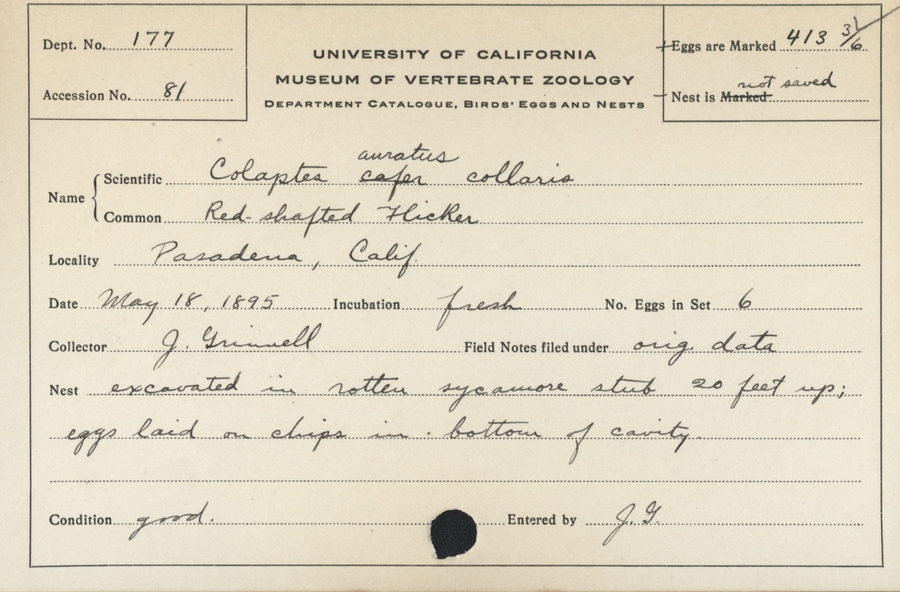 Dept. No. 177
Accession No. 81
UNIVERSITY OF CALIFORNIA
MUSEUM OF VERTEBRATE ZOOLOGY
DEPARTMENT CATALOGUE, BIRDS' EGGS AND NESTS
Eggs are Marked 413 3/6
not saved
Nest is Marked
auratus
Name Scientific Colaptes cafer collaris
Common Red-shafted Flicker
Locality Pasadena, Calif.
Date May 18, 1895 Incubation fresh No. Eggs in Set 6
Collector J. Grinnell Field Notes filed under orig. data
Nest excavated in rotten sycamore stub 20 feet up;
eggs laid on chips in bottom of cavity.
Condition good. Entered by J.G.